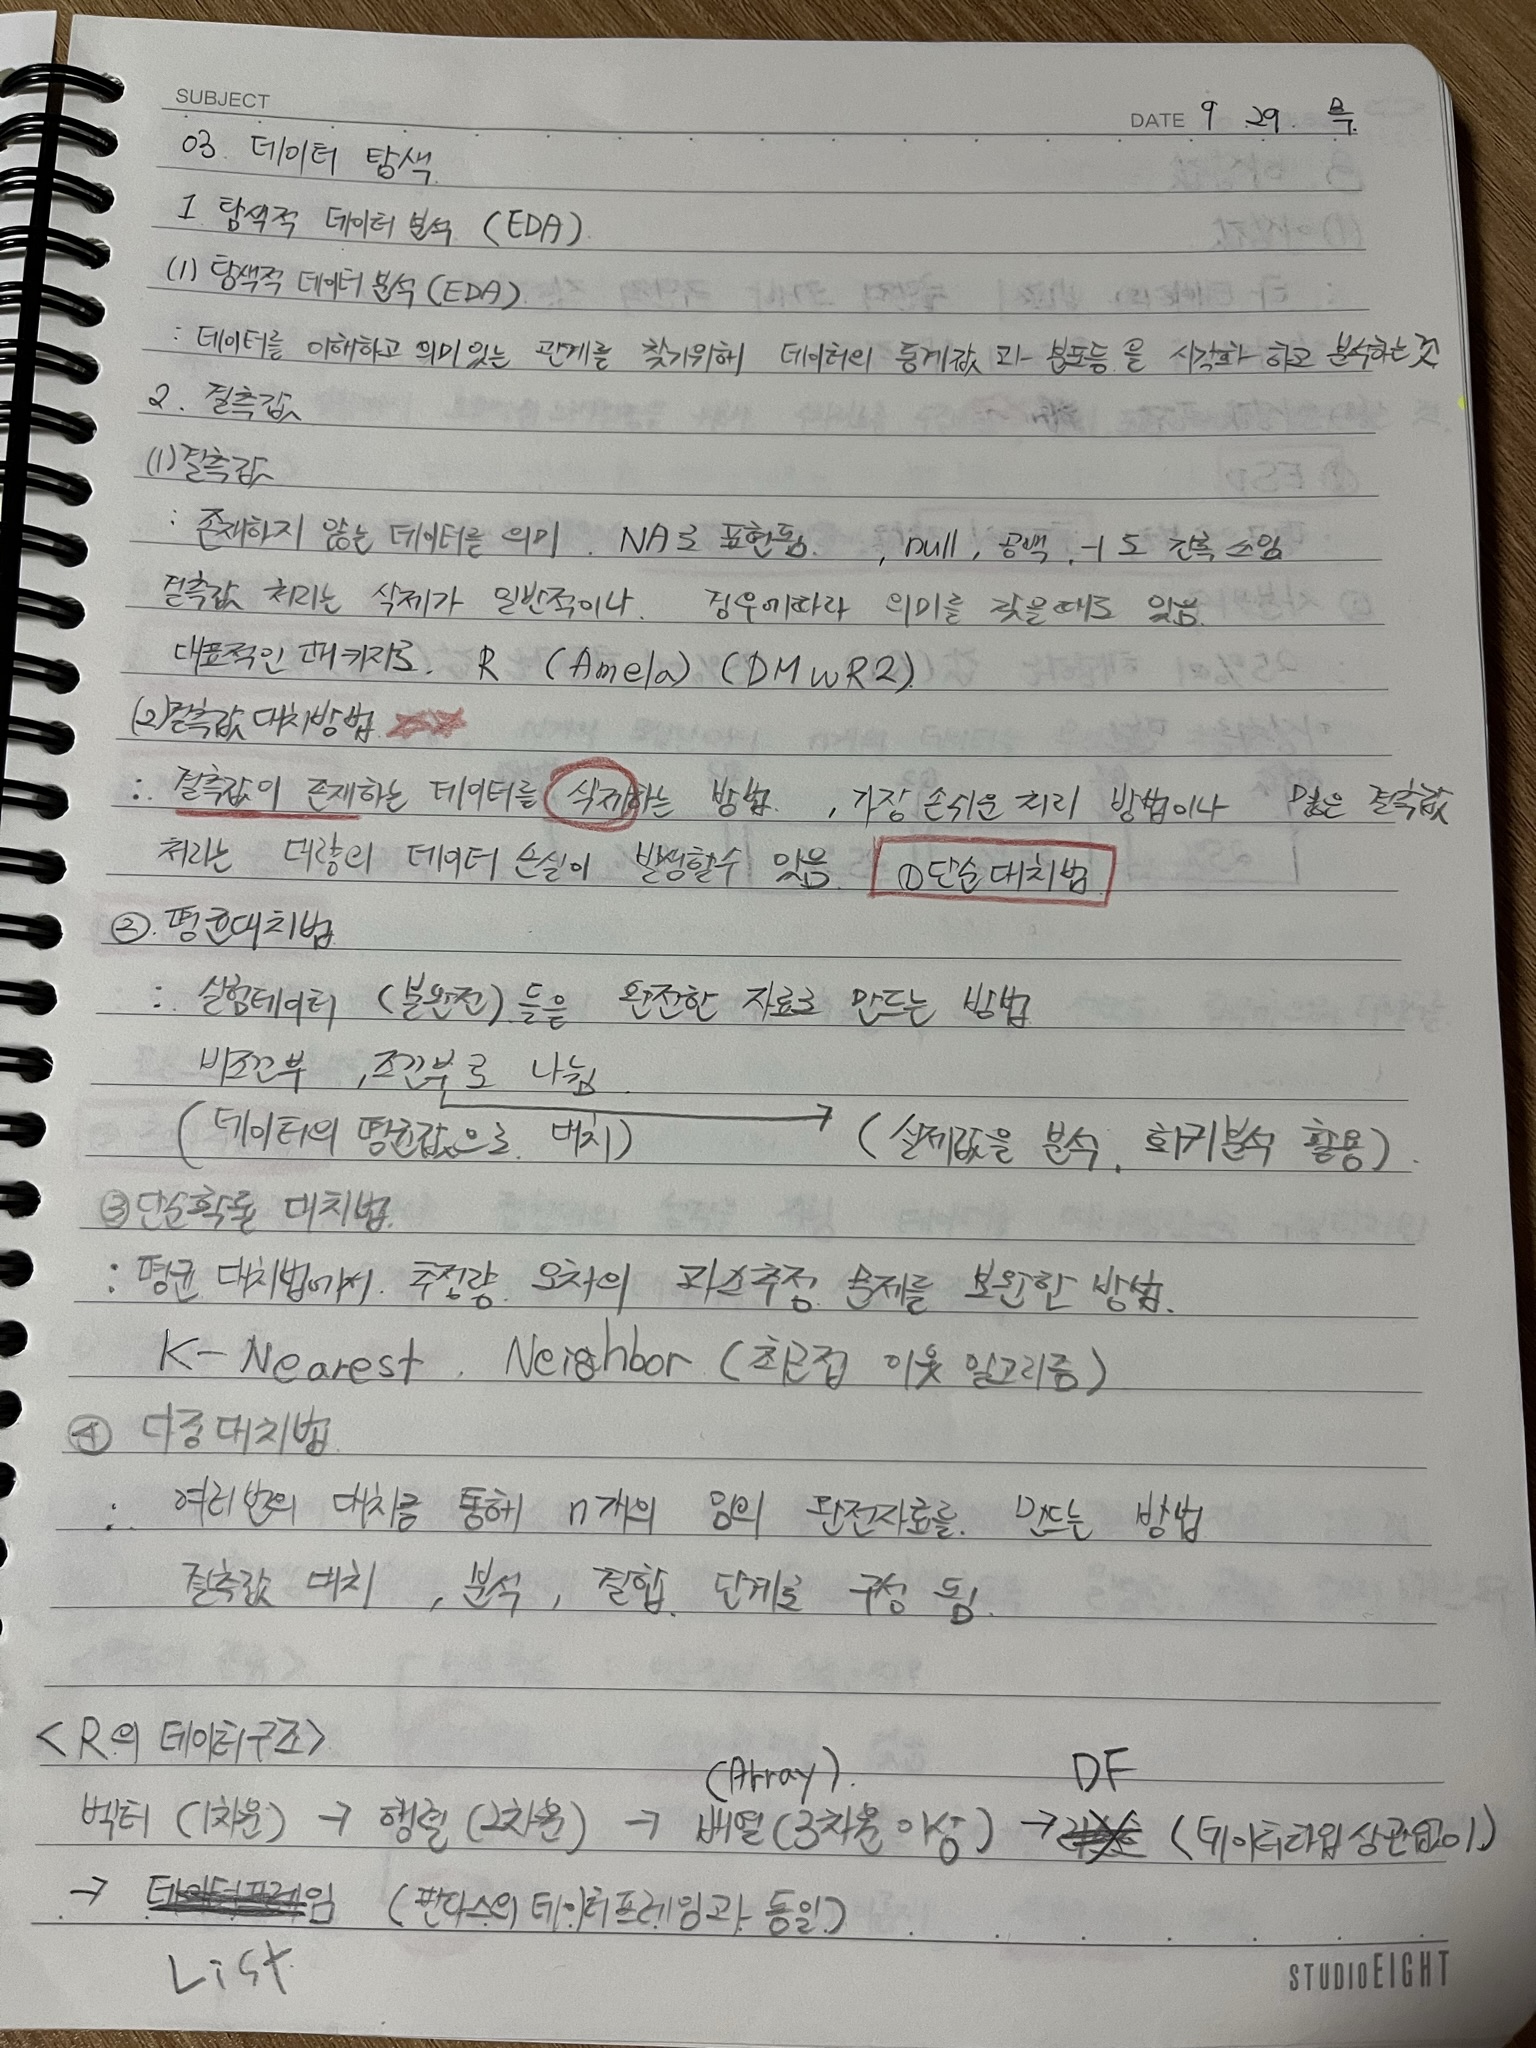 SUBJECT
DATE 9 . 29 . 목
03. 데이터 탐색
1 탐색적 데이터 분석 (EDA)
(1) 탐색적 데이터 분석 (EDA)
: 데이터를 이해하고 의미있는 관계를 찾기위해 데이터의 통계값 과 분포등을 시각화 하고 분석하는것
2. 결측값
(1) 결측값
: 존재하지 않는 데이터를 의미. NA로 표현됨. , null, 공백, -1 도 간혹 쓰임
결측값 처리는 삭제가 일반적이나. 경우에따라 의미를 갖을때도 있음
대표적인 패키지로. R (Amela) (DMwR2)
(2) 결측값 대치방법 ☆☆
: 결측값이 존재하는 데이터를 삭제하는 방법. , 가장 손쉬운 처리 방법이나 많은 결측값
처리는 대량의 데이터 손실이 발생할수 있음 ①단순대치법
②. 평균대치법
: 실험데이터 (불완전) 들을 완전한 자료로 만드는 방법
비조건부 , 조건부로 나뉨.
(데이터의 평균값으로 대치) → (실제값을 분석, 회귀분석 활용).
③ 단순확률 대치법
: 평균 대치법에서. 추정량 오차의 과소추정 문제를 보완한 방법.
K-Nearest. Neighbor (최근접 이웃 알고리즘)
④ 다중대치법
: 여러번의 대치를 통해 n개의 임의 완전자료를 만드는 방법
결측값 대치 , 분석, 결합. 단계로 구성 됨.
<R의 데이터구조>
(Array). DF
벡터 (1차원) → 행렬 (2차원) → 배열 (3차원 이상) → (데이터타입 상관없이)
→ 데이터프레임 (판다스의 데이터프레임과 동일)
List
STUDIOEIGHT